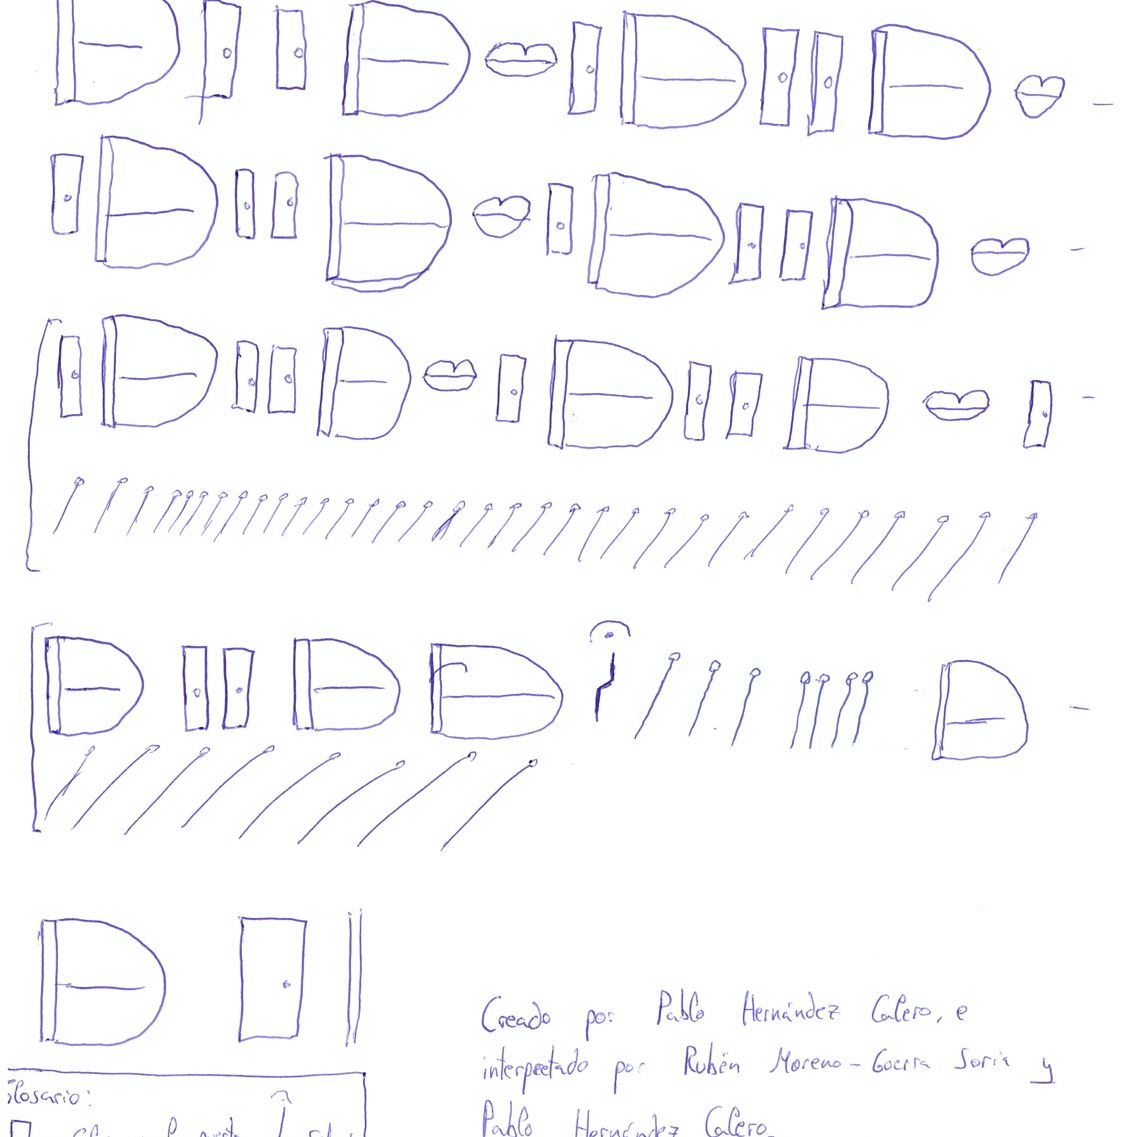 Creado por Pablo Hernández Calero, e
interpretado por Rubén Moreno-Guerra Soria y
Pablo Hernández Calero.
Glosario: